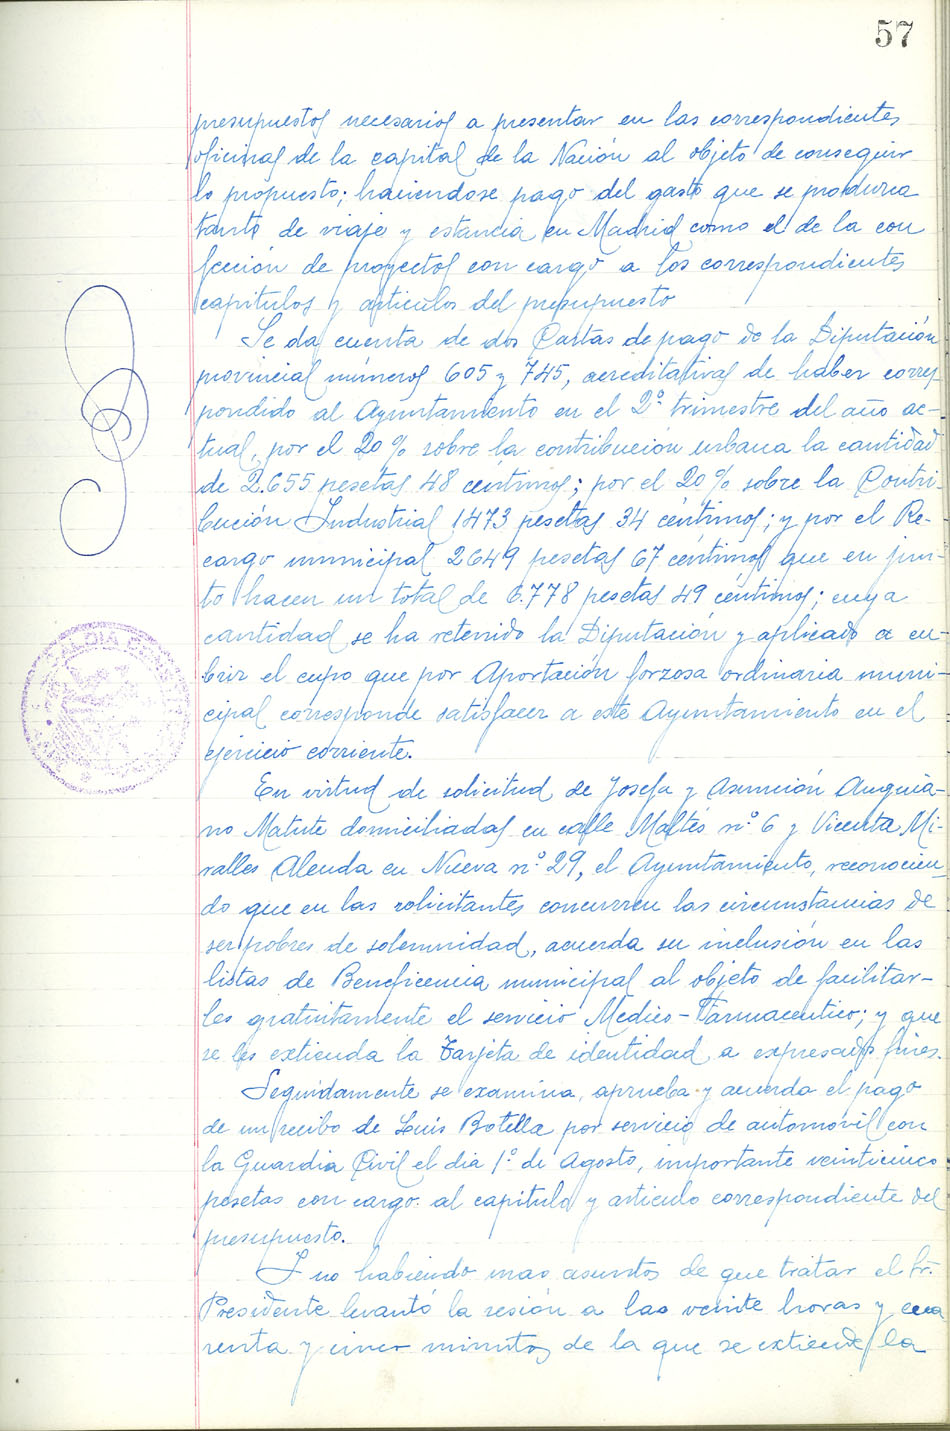 57
presupuestos necesarios a presentar en las correspondientes
oficinas de la capital de la Nación al objeto de conseguir
lo propuesto; haciendose pago del gasto que se produzca
tanto de viaje y estancia en Madrid como el de la con
fección de proyectos con cargo a los correspondientes
capitulos y articulos del presupuesto
Se da cuenta de dos Cartas de pago de la Diputación
provincial números 605 y 745, acreditativas de haber corres-
pondido al Ayuntamiento en el 2º trimestre del año ac-
tual, por el 20% sobre la contribución urbana la cantidad
de 2.655 pesetas 48 céntimos; por el 20% sobre la Contri-
bución Industrial 1473 pesetas 34 céntimos; y por el Re-
cargo municipal 2649 pesetas 67 céntimos que en jun-
to hacen un total de 6.778 pesetas 49 céntimos; cuya
cantidad se ha retenido la Diputación y aplicado a cu-
brir el cupo que por Aportación forzosa ordinaria muni-
cipal corresponde satisfacer a este Ayuntamiento en el
ejercicio corriente.
En virtud de solicitud de Josefa y Asunción Anguia-
no Matute domiciliadas en calle Maltés nº 6 y Vicenta Mi-
ralles Alenda en Nueva nº 29, el Ayuntamiento, reconocien-
do que en las solicitantes concurren las circunstancias de
ser pobres de solemnidad, acuerda su inclusión en las
listas de Beneficencia municipal al objeto de facilitar-
les gratuitamente el servicio Medico-Farmaceutico; y que
se les extienda la Tarjeta de identidad a expresados fines.
Seguidamente se examina, aprueba y acuerda el pago
de un recibo de Luis Botella por servicio de automovil con
la Guardia Civil el dia 1º de Agosto, importante veinticinco
pesetas con cargo al capitulo y articulo correspondiente del
presupuesto.
Y no habiendo mas asuntos de que tratar el Sr.
Presidente levantó la sesión a las veinte horas y cua
renta y cinco minutos de la que se extiende la